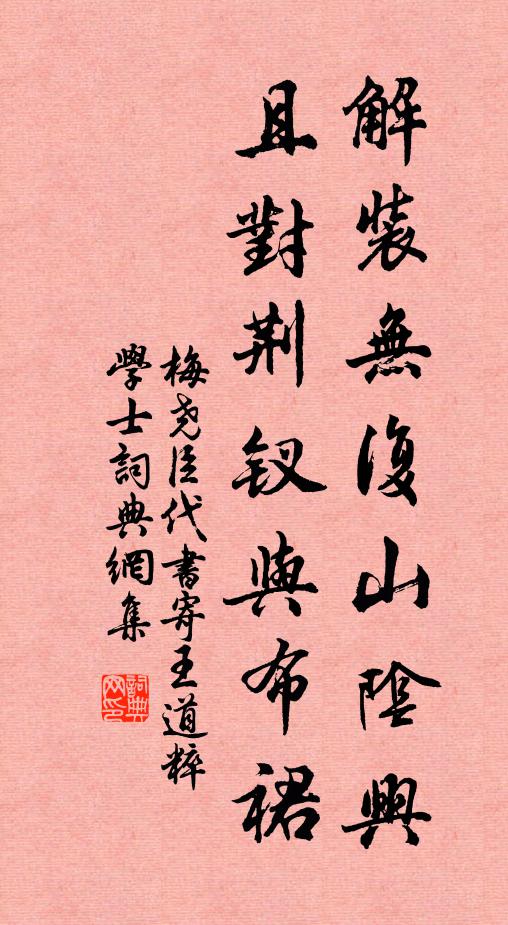 解裝無復山陰興
且對荆釵與布裙
梅尧臣代書寄王道粹
學士詞典網集
詞典网印